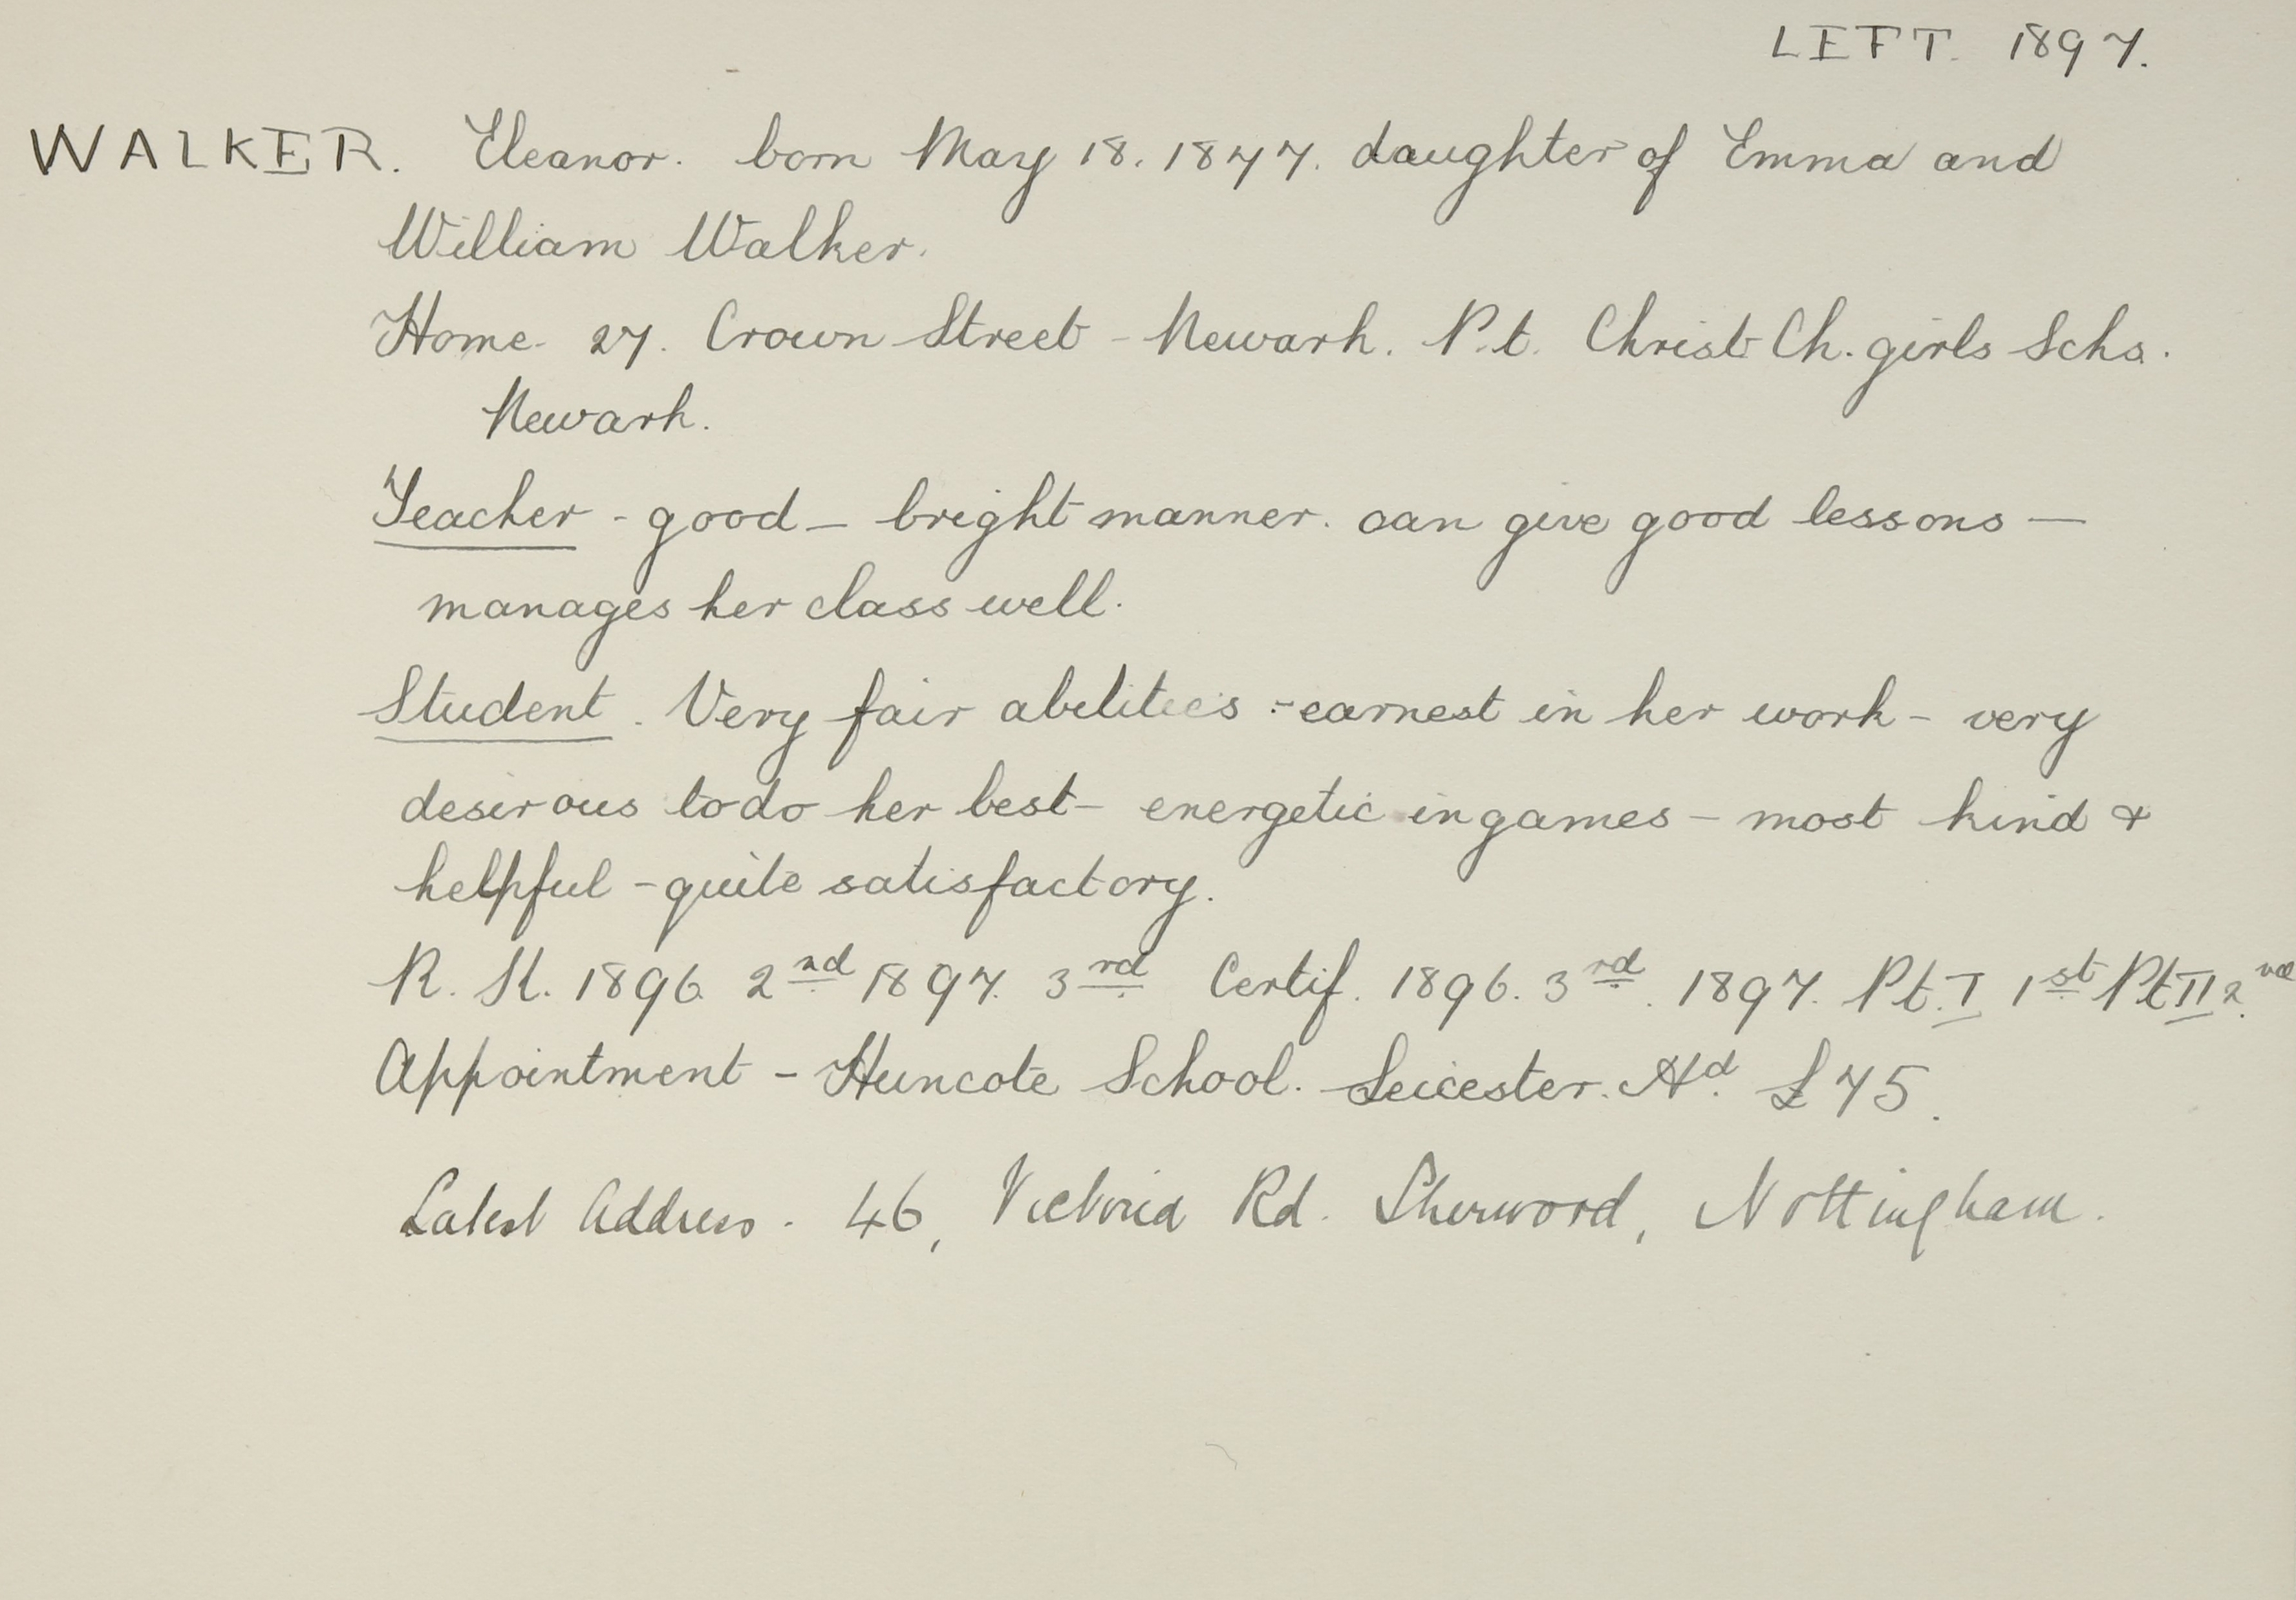 LEFT. 1897.
WALKER. Eleanor. born May 18. 1877. daughter of Emma and
William Walker.
Home- 27. Crown Street - Newark. P.t. Christ Ch. girls Schs.
Newark.
Teacher - good - bright manner. can give good lessons —
manages her class well.
Student. Very fair abilities - earnest in her work - very
desirous to do her best - energetic in games - most kind &
helpful - quite satisfactory.
R. K. 1896 2nd 1897. 3rd Certif. 1896. 3rd. 1897. Pt. I 1st Pt II 2nd
Appointment - Huncote School. Leicester. Hd. £75.
Latest Address. 46, Victoria Rd. Sherwood, Nottingham.